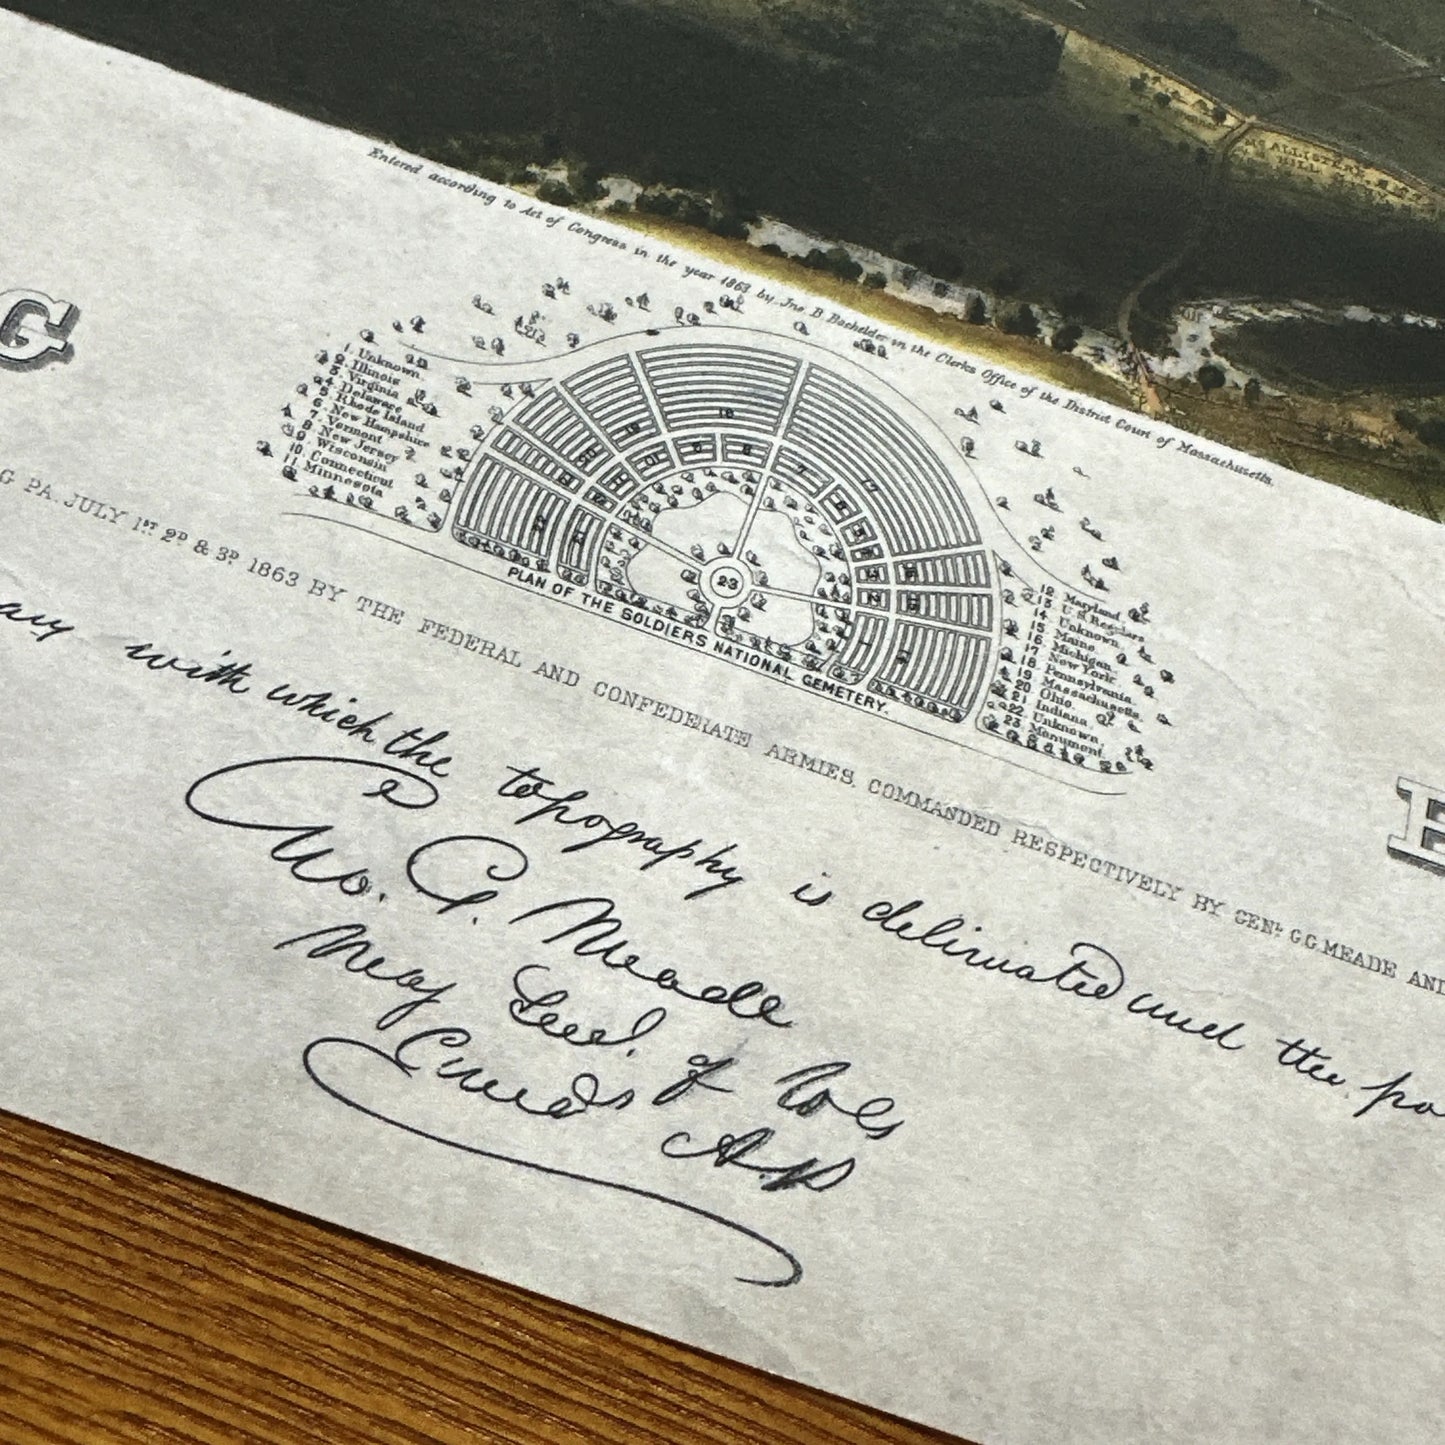 McALLISTER'S
HILL
Entered according to Act of Congress in the year 1863 by Jno B Bachelder in the Clerks Office of the District Court of Massachusetts.
G
1. Unknown
2. Illinois
3. Virginia
4. Delaware
5. Rhode Island
6. New Hampshire
7. Vermont
8. New Jersey
9. Wisconsin
10. Connecticut
11. Minnesota
23
PLAN OF THE SOLDIERS NATIONAL CEMETERY.
12. Maryland
13. U.S. Regulars
14. Unknown
15. Maine
16. Michigan
17. New York
18. Pennsylvania
19. Massachusetts.
20. Ohio.
21. Indiana
22. Unknown.
23. Monument.
G PA. JULY 1ST 2D & 3D. 1863 BY THE FEDERAL AND CONFEDERATE ARMIES, COMMANDED RESPECTIVELY BY GENL. G.G. MEADE AND
with which the topography is deliniated and the po
Geo. G. Meade
Maj Genl. of Vols
Comdg A.P.